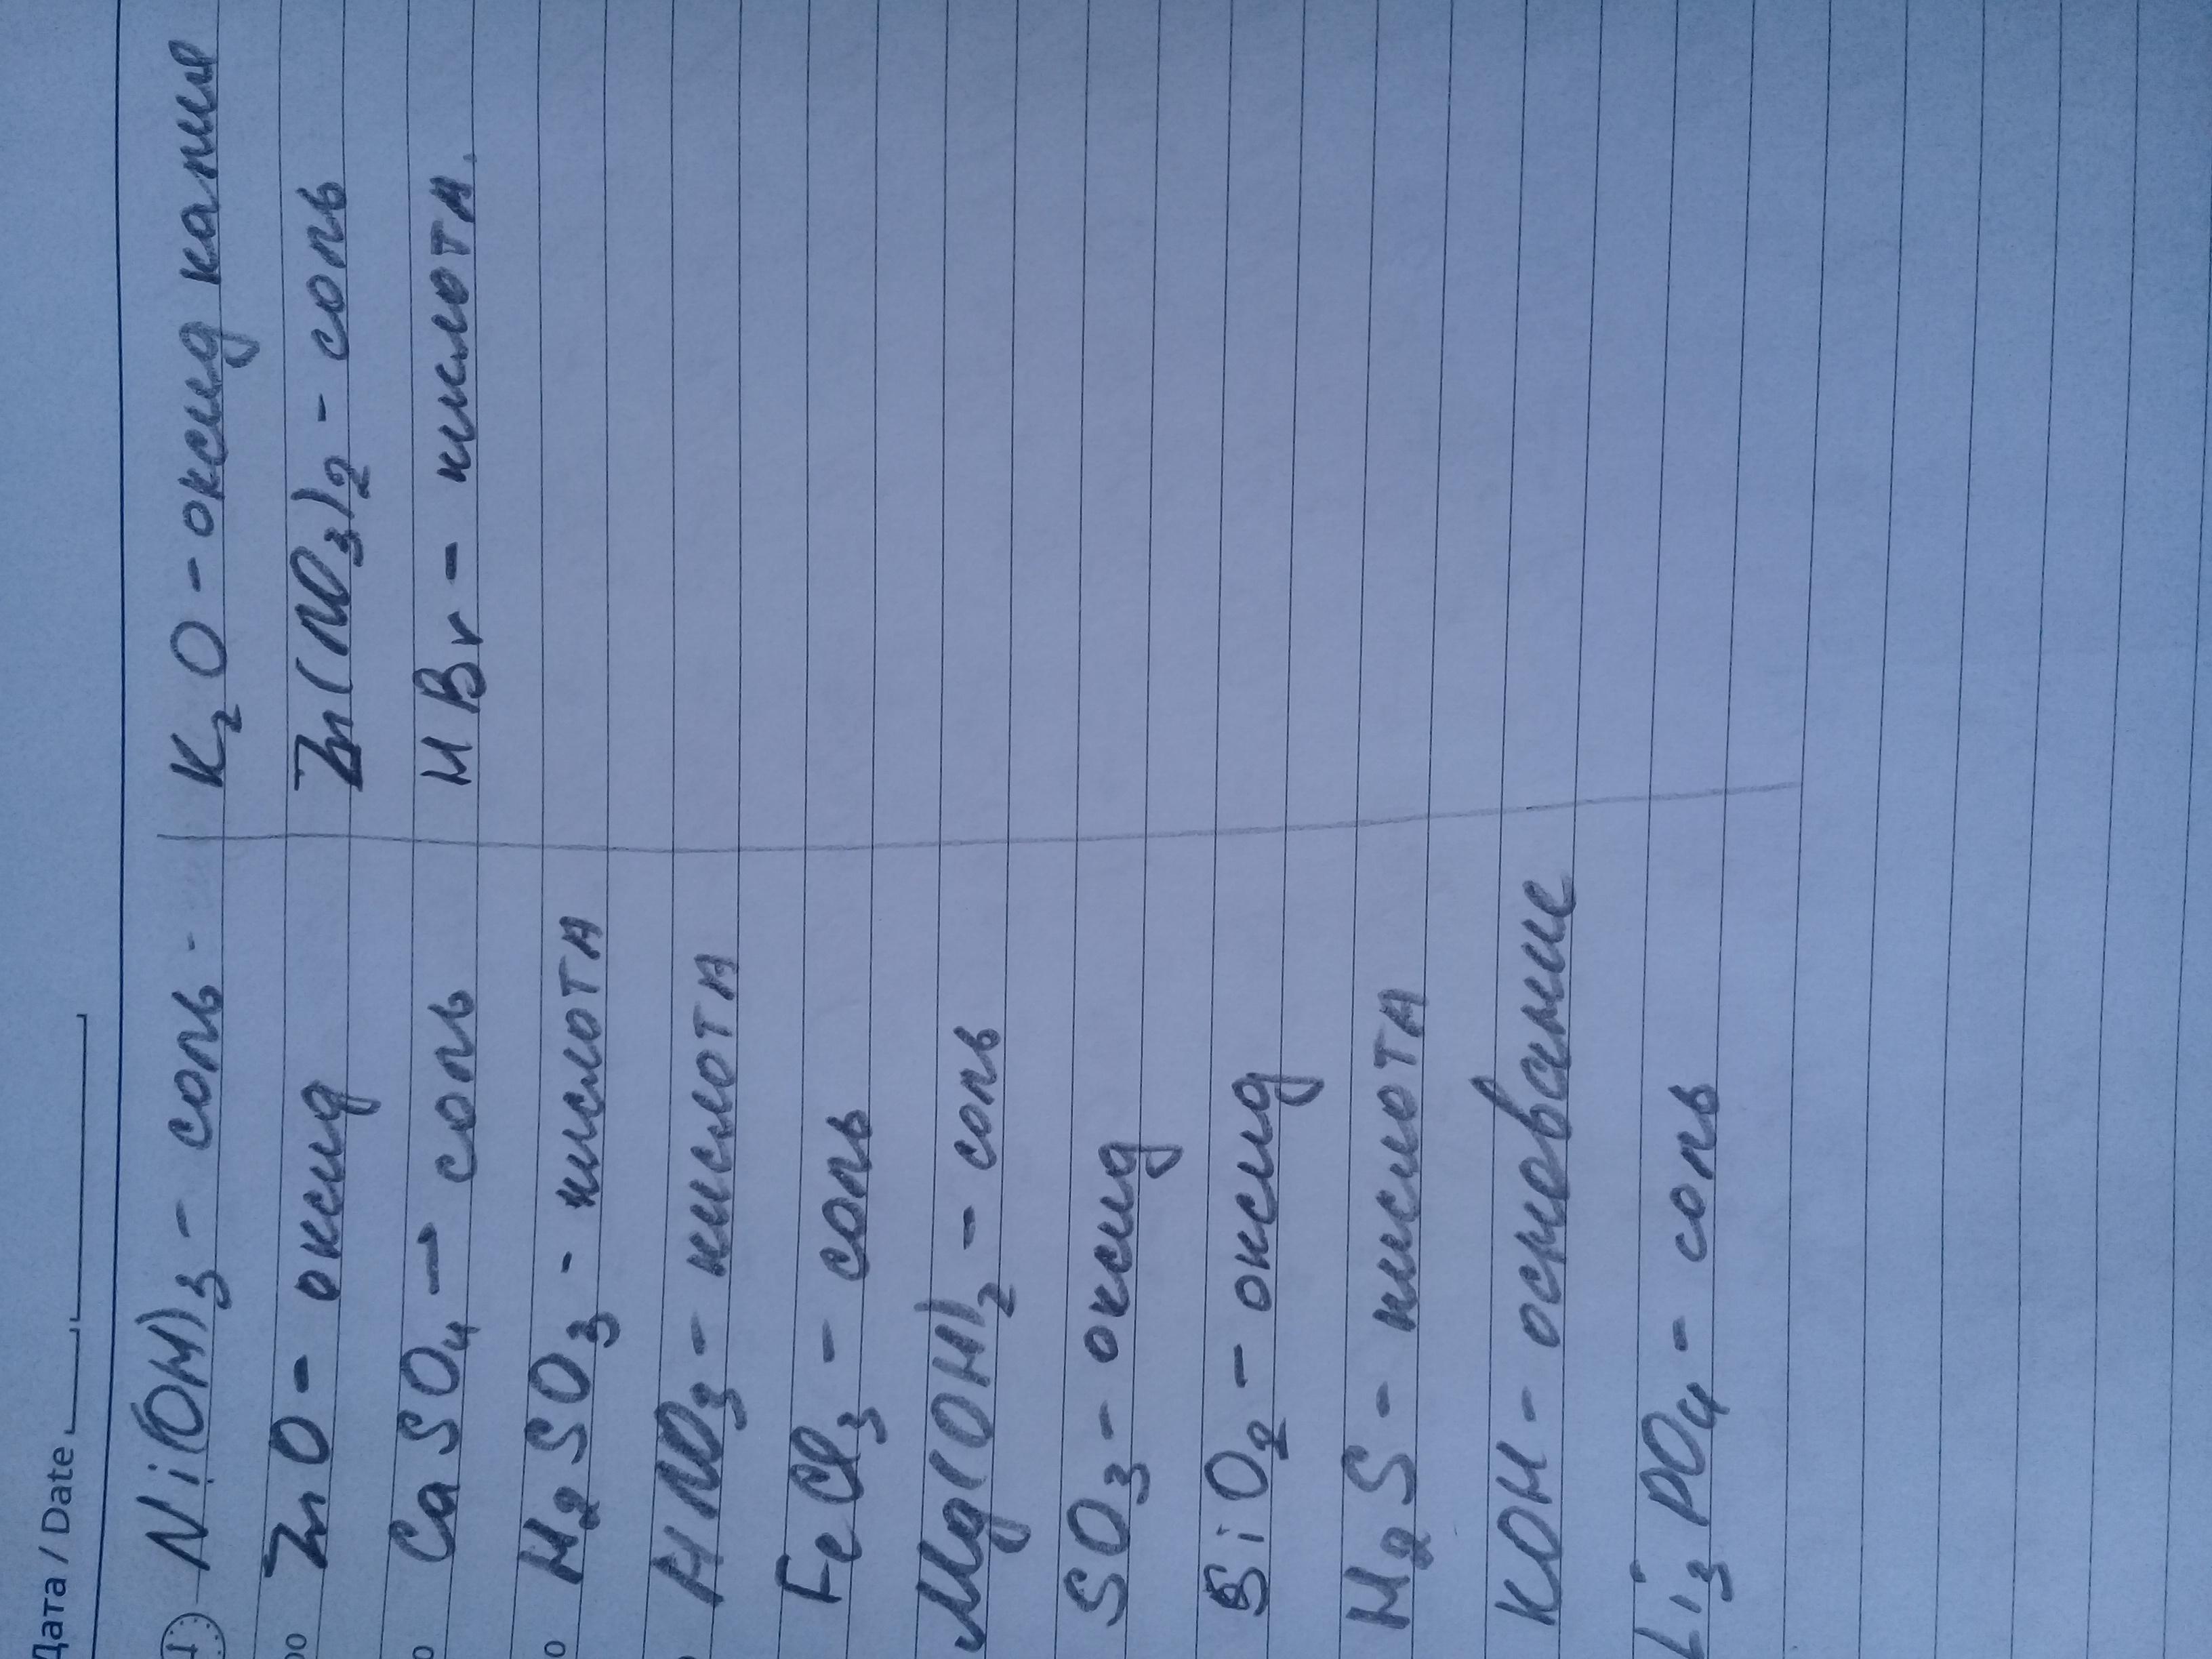 Дата / Date
Ni(OH)₃ - соль -
ZnO - оксид
CaSO₄ - соль
H₂SO₃ - кислота
HNO₃ - кислота
FeCl₃ - соль
Mg(OH)₂ - соль
SO₃ - оксид
SiO₂ - оксид
H₂S - кислота
KOH - основание
Li₃PO₄ - соль
K₂O - оксид калия
Zn(NO₃)₂ - соль
HBr - кислота.